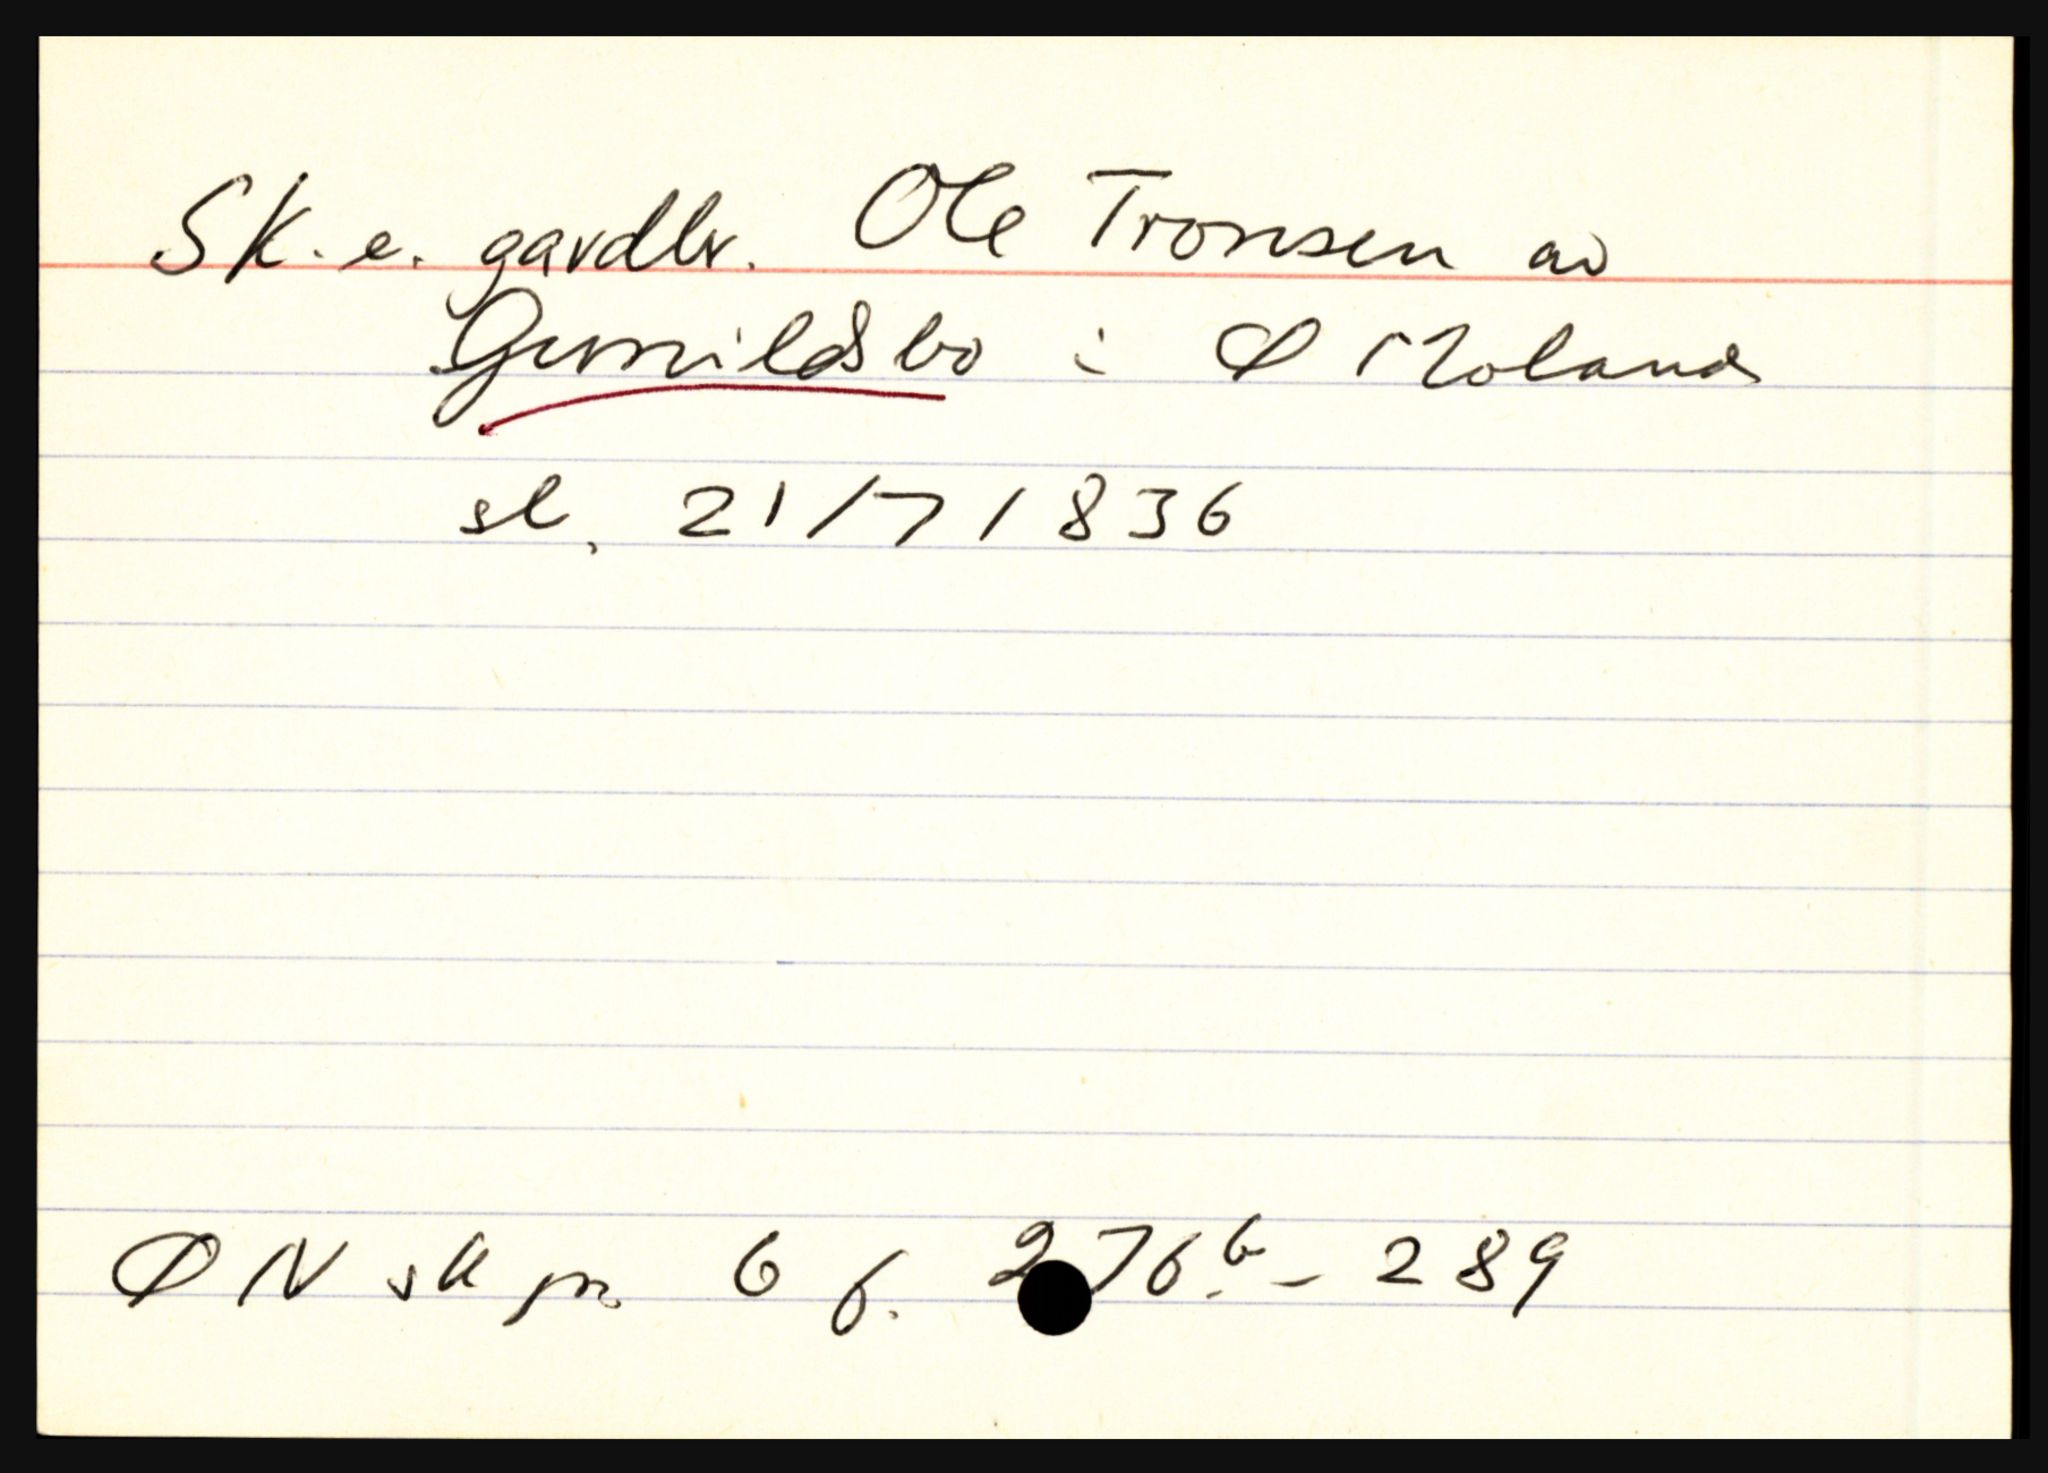 Sk. e. gardbr. Ole Tronsen av
Gunnildsbo i Ø Moland
sl. 21/7 1836
ØN sk pr. 6 f. 276.b - 289